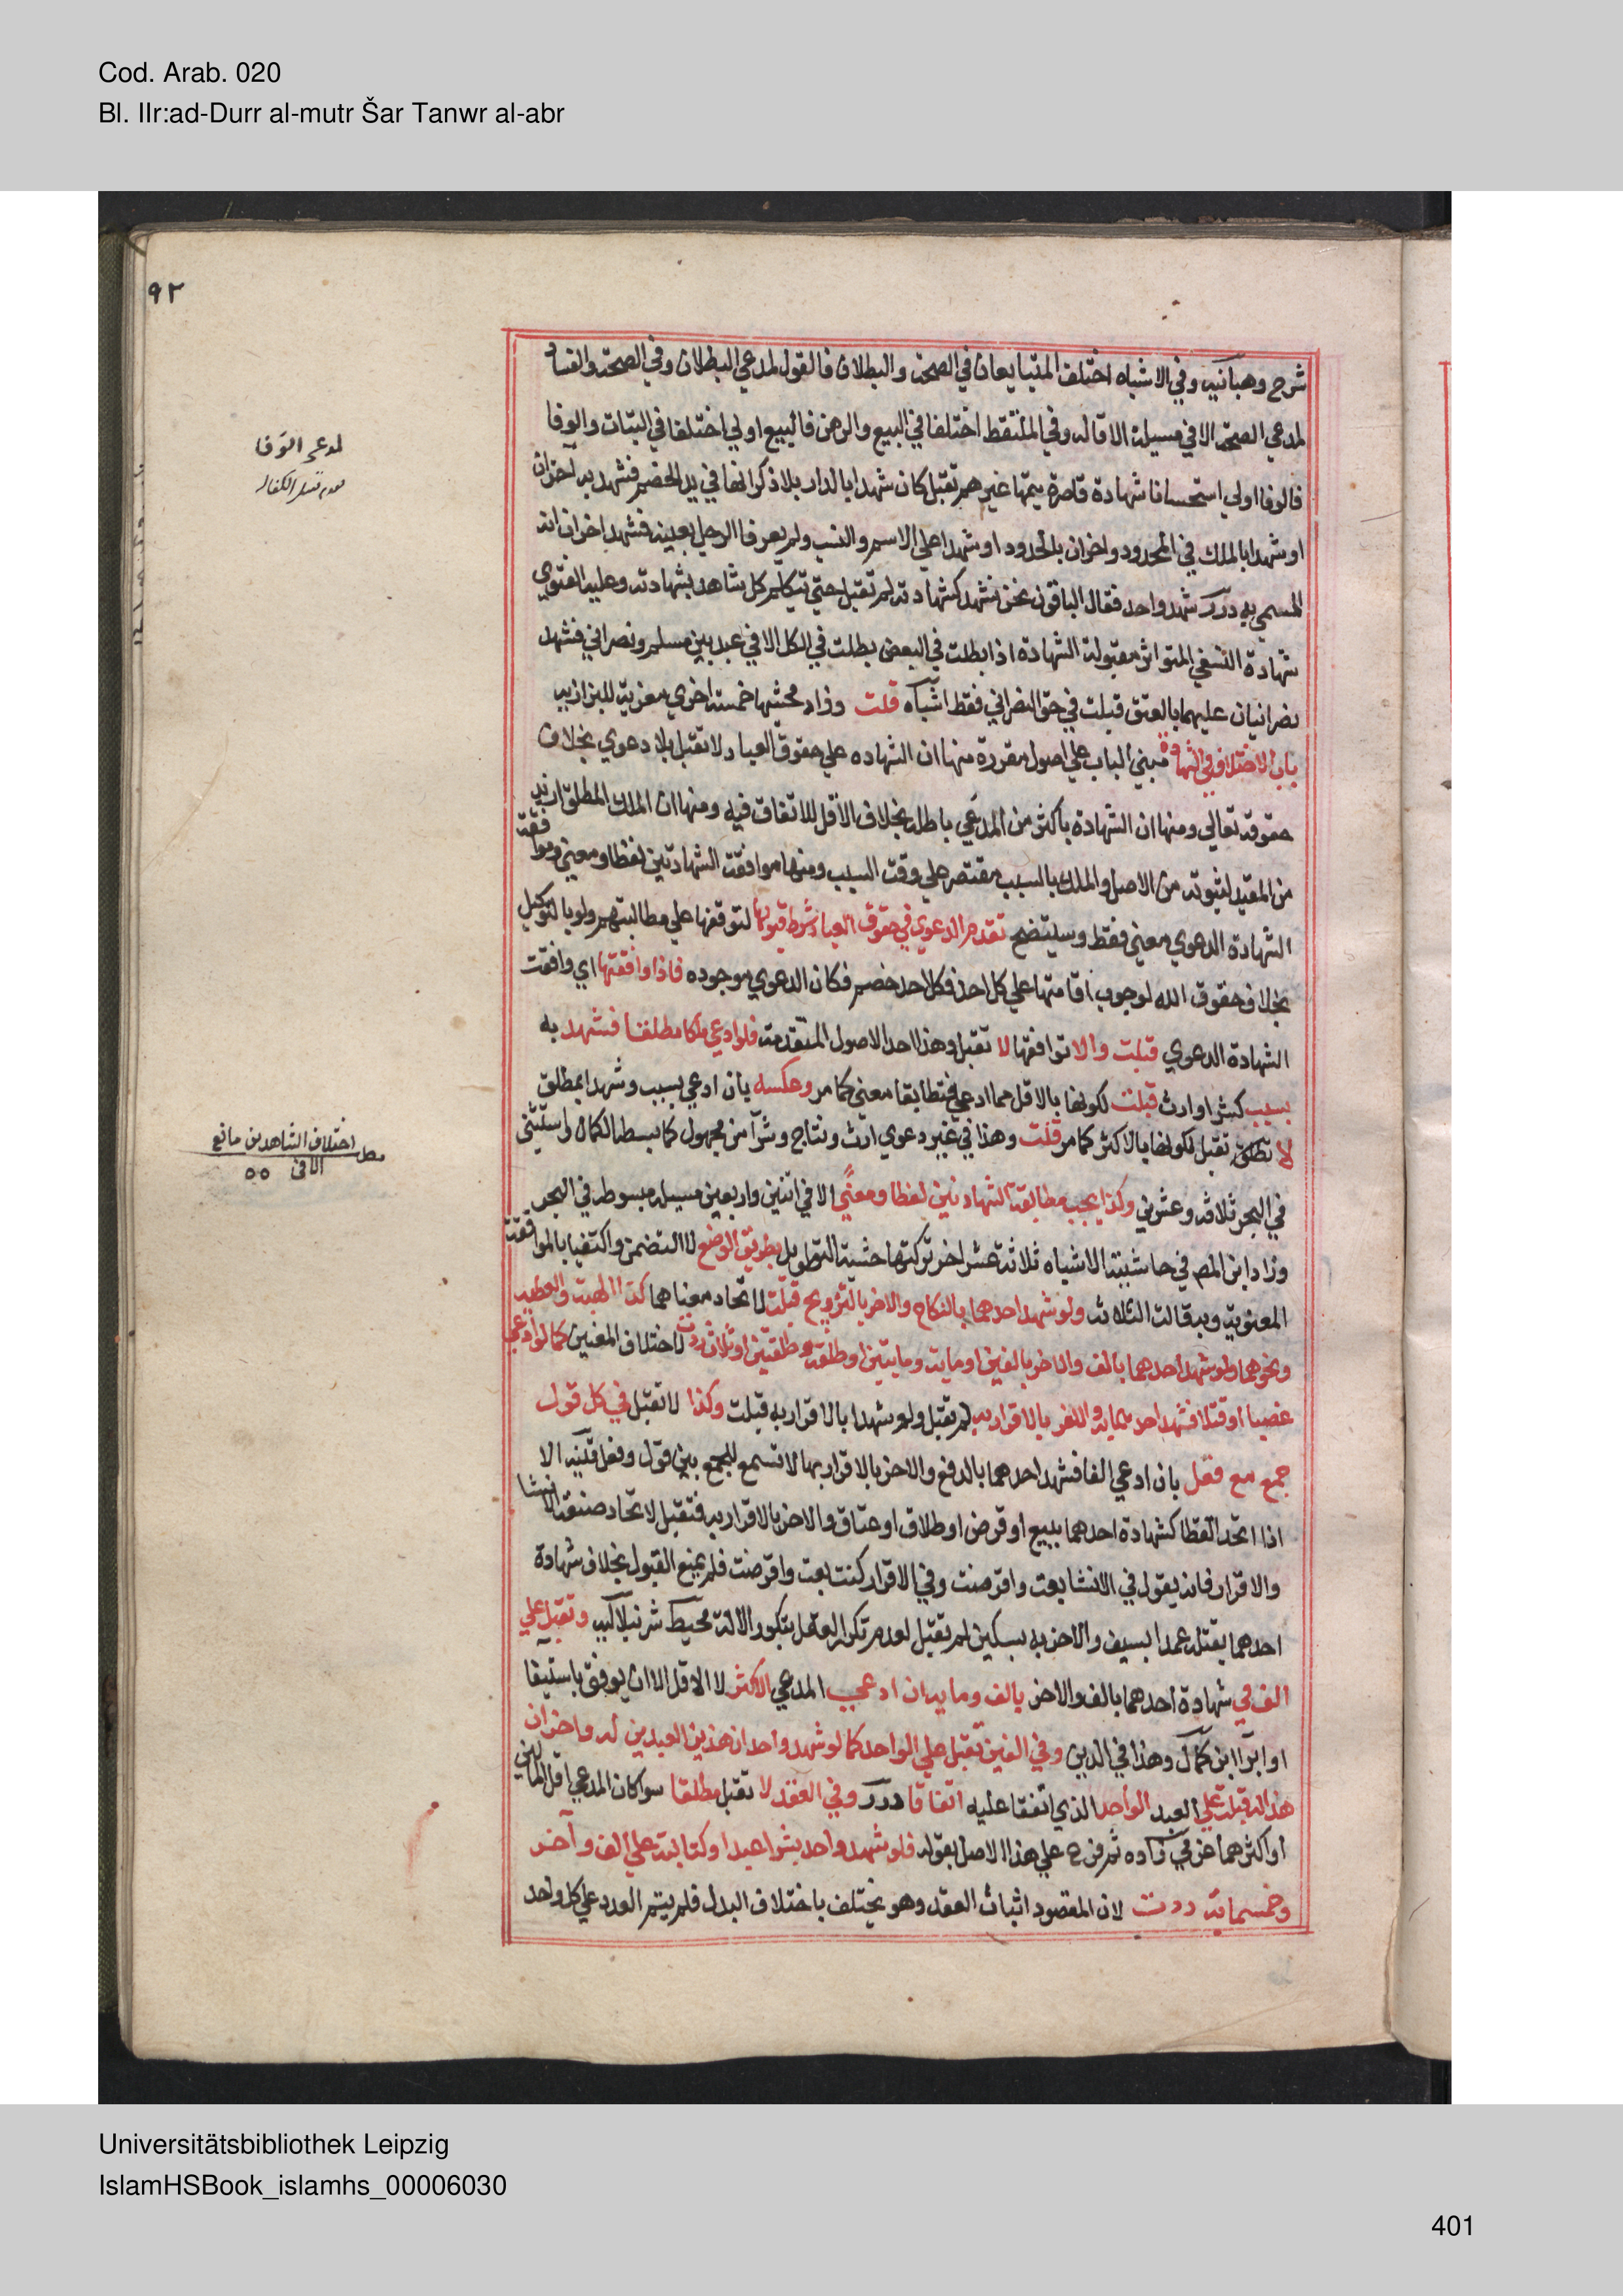 Cod. Arab. 020
Bl. IIr:ad-Durr al-mutr Šar Tanwr al-abr
٩٢
شرح وهبانيه وفي الاشباه اختلف المتبايعان في الصحة والبطلان فالقول لمدعي البطلان وفي الصحة والفساد
لمدعي الصحة الا في مسيلة الاقاله وفي الملتقط اختلفا في البيع والرهن فالبيع اولي اختلفا في البتات والوفا
فالوفا اولي استحسانا شهادة قاصرة يتمها غيرهم تقبل كان شهدا بالدار بلا ذكر انها في يد الخصم فشهد به آخران
او شهدا بالملك في المحدود واخران بالحدود او شهدا علي الاسم والنسب ولم يعرفا الرجل بعينه فشهد اخران انه
المسمي به درر شهد واحد فقال الباقون نحن نشهد كشهادته لم تقبل حتي يتكلم كل شاهد بشهادته وعليه الفتوي
شهادة النفي المتواتر مقبولة الشهادة اذا بطلت في البعض بطلت في الكل الا في عبد بين مسلم ونصراني فشهد
نصرانيان عليهما بالعتق قبلت في حق النصراني فقط اشباه قلت وزاد محشيها خمسة اخري معزية للبزازيه
باب الاختلاف في الشهادة مبني الباب علي اصول مقررة منها ان الشهاده علي حقوق العباد لا تقبل بلا دعوي بخلاف
حقوقه تعالي ومنها ان الشهادة باكثر من المدعي باطلة بخلاف الاقل للاتفاق فيه ومنها ان الملك المطلق ازيد
من المقيد لثبوته من الاصل والملك بالسبب مقتصر علي وقت السبب ومنها موافقة الشهادتين لفظا ومعني وموافقة
الشهادة الدعوي معني فقط وسيتضح تقدم الدعوي في حقوق العباد شرط قبولها لتوقفها علي مطالبتهم ولو بالتوكيل
بخلاف حقوق الله لوجوب اقامتها علي كل احد فكل احد خصم فكان الدعوي موجوده فاذا وافقتها اي وافقت
الشهادة الدعوي قبلت والا توافقها لا تقبل وهذا احد الاصول المتقدمة فلو ادعي ملكا مطلقا فشهد به
بسبب كشرا او ارث قبلت لكونها بالاقل مما ادعي فتطابقا معني كما مر وعكسه بان ادعي بسبب وشهدا بمطلق
لا تقبل لكونها بالاكثر كما مر قلت وهذا في غير دعوي ارث ونتاج وشرآ من مجهول كما بسطه الكمال واستثني
في البحر ثلاثه وعشرين وكذا يجب مطابقة الشهادتين لفظا ومعنًي الا في اثنين واربعين مسيلة مبسوطه في البحر
وزاد ابن المص في حاشية الاشباه ثلاثة عشر اخر تركتها خشية التطويل بطريق الوضع لا التضمن واكتفيا بالموافقة
المعنوية وبه قالت الثلاث ولو شهد احدهما بالنكاح والاخر بالتزويج قبلت لاتحاد معناهما كذا الهبة والعطيه
ونحوهما ولو شهد احدهما بالف والاخر بالفين او ماية ومايتين او طلقة وطلقتين او ثلاث ردت لاختلاف المعنين كما لو ادعي
غصبا او قتلا فشهد احد بهما والاخر بالاقرار به لم تقبل ولو شهدا بالاقرار به قبلت وكذا لا تقبل في كل قول
جمع مع فعل بان ادعي الفا فشهد احدهما بالدفع والاخر بالاقرار بها لا تسمع للجمع بين قول وفعل قنيه الا
اذا اتحد الفظا كشهادة احدهما ببيع او قرض او طلاق او عتاق والاخر بالاقرار به فتقبل لاتحاد صيغة الانشا
والاقرار فانه يقول في الانشا بعت واقرضت وفي الاقرار كنت بعت واقرضت فلم يمنع القبول بخلاف شهادة
احدهما بقتله عمدا بسيف والاخر به بسكين لم تقبل لعدم تكرار الفعل بتكرر الالة محيط شرنبلاليه وتقبل علي
الف في شهادة احدهما بالف والاخر بالف ومايه ان ادعي المدعي الاكثر لا الاقل الا ان يوفق باستيفا
او ابرآ ابن كمال وهذا في الدين وفي العين تقبل علي الواحد كما لو شهد واحد ان هذين العبدين له واخر ان
هذا له قبلت علي العبد الواحد الذي اتفقا عليه اتفاقا درر وفي العقد لا تقبل مطلقا سوا كان المدعي اقل المالين
او اكثرهما عزمي زاده ثم فرع علي هذا الاصل بقوله فلو شهد واحد بشرا عبد او كتابة علي الف وآخر
وخمسماية ردت لان المقصود اثبات العقد وهو يختلف باختلاف البدل فلم يتم العدد علي كل واحد
لمدعي الوفا
اختلاف الشاهدين مانع
Universitätsbibliothek Leipzig
IslamHSBook_islamhs_00006030
401